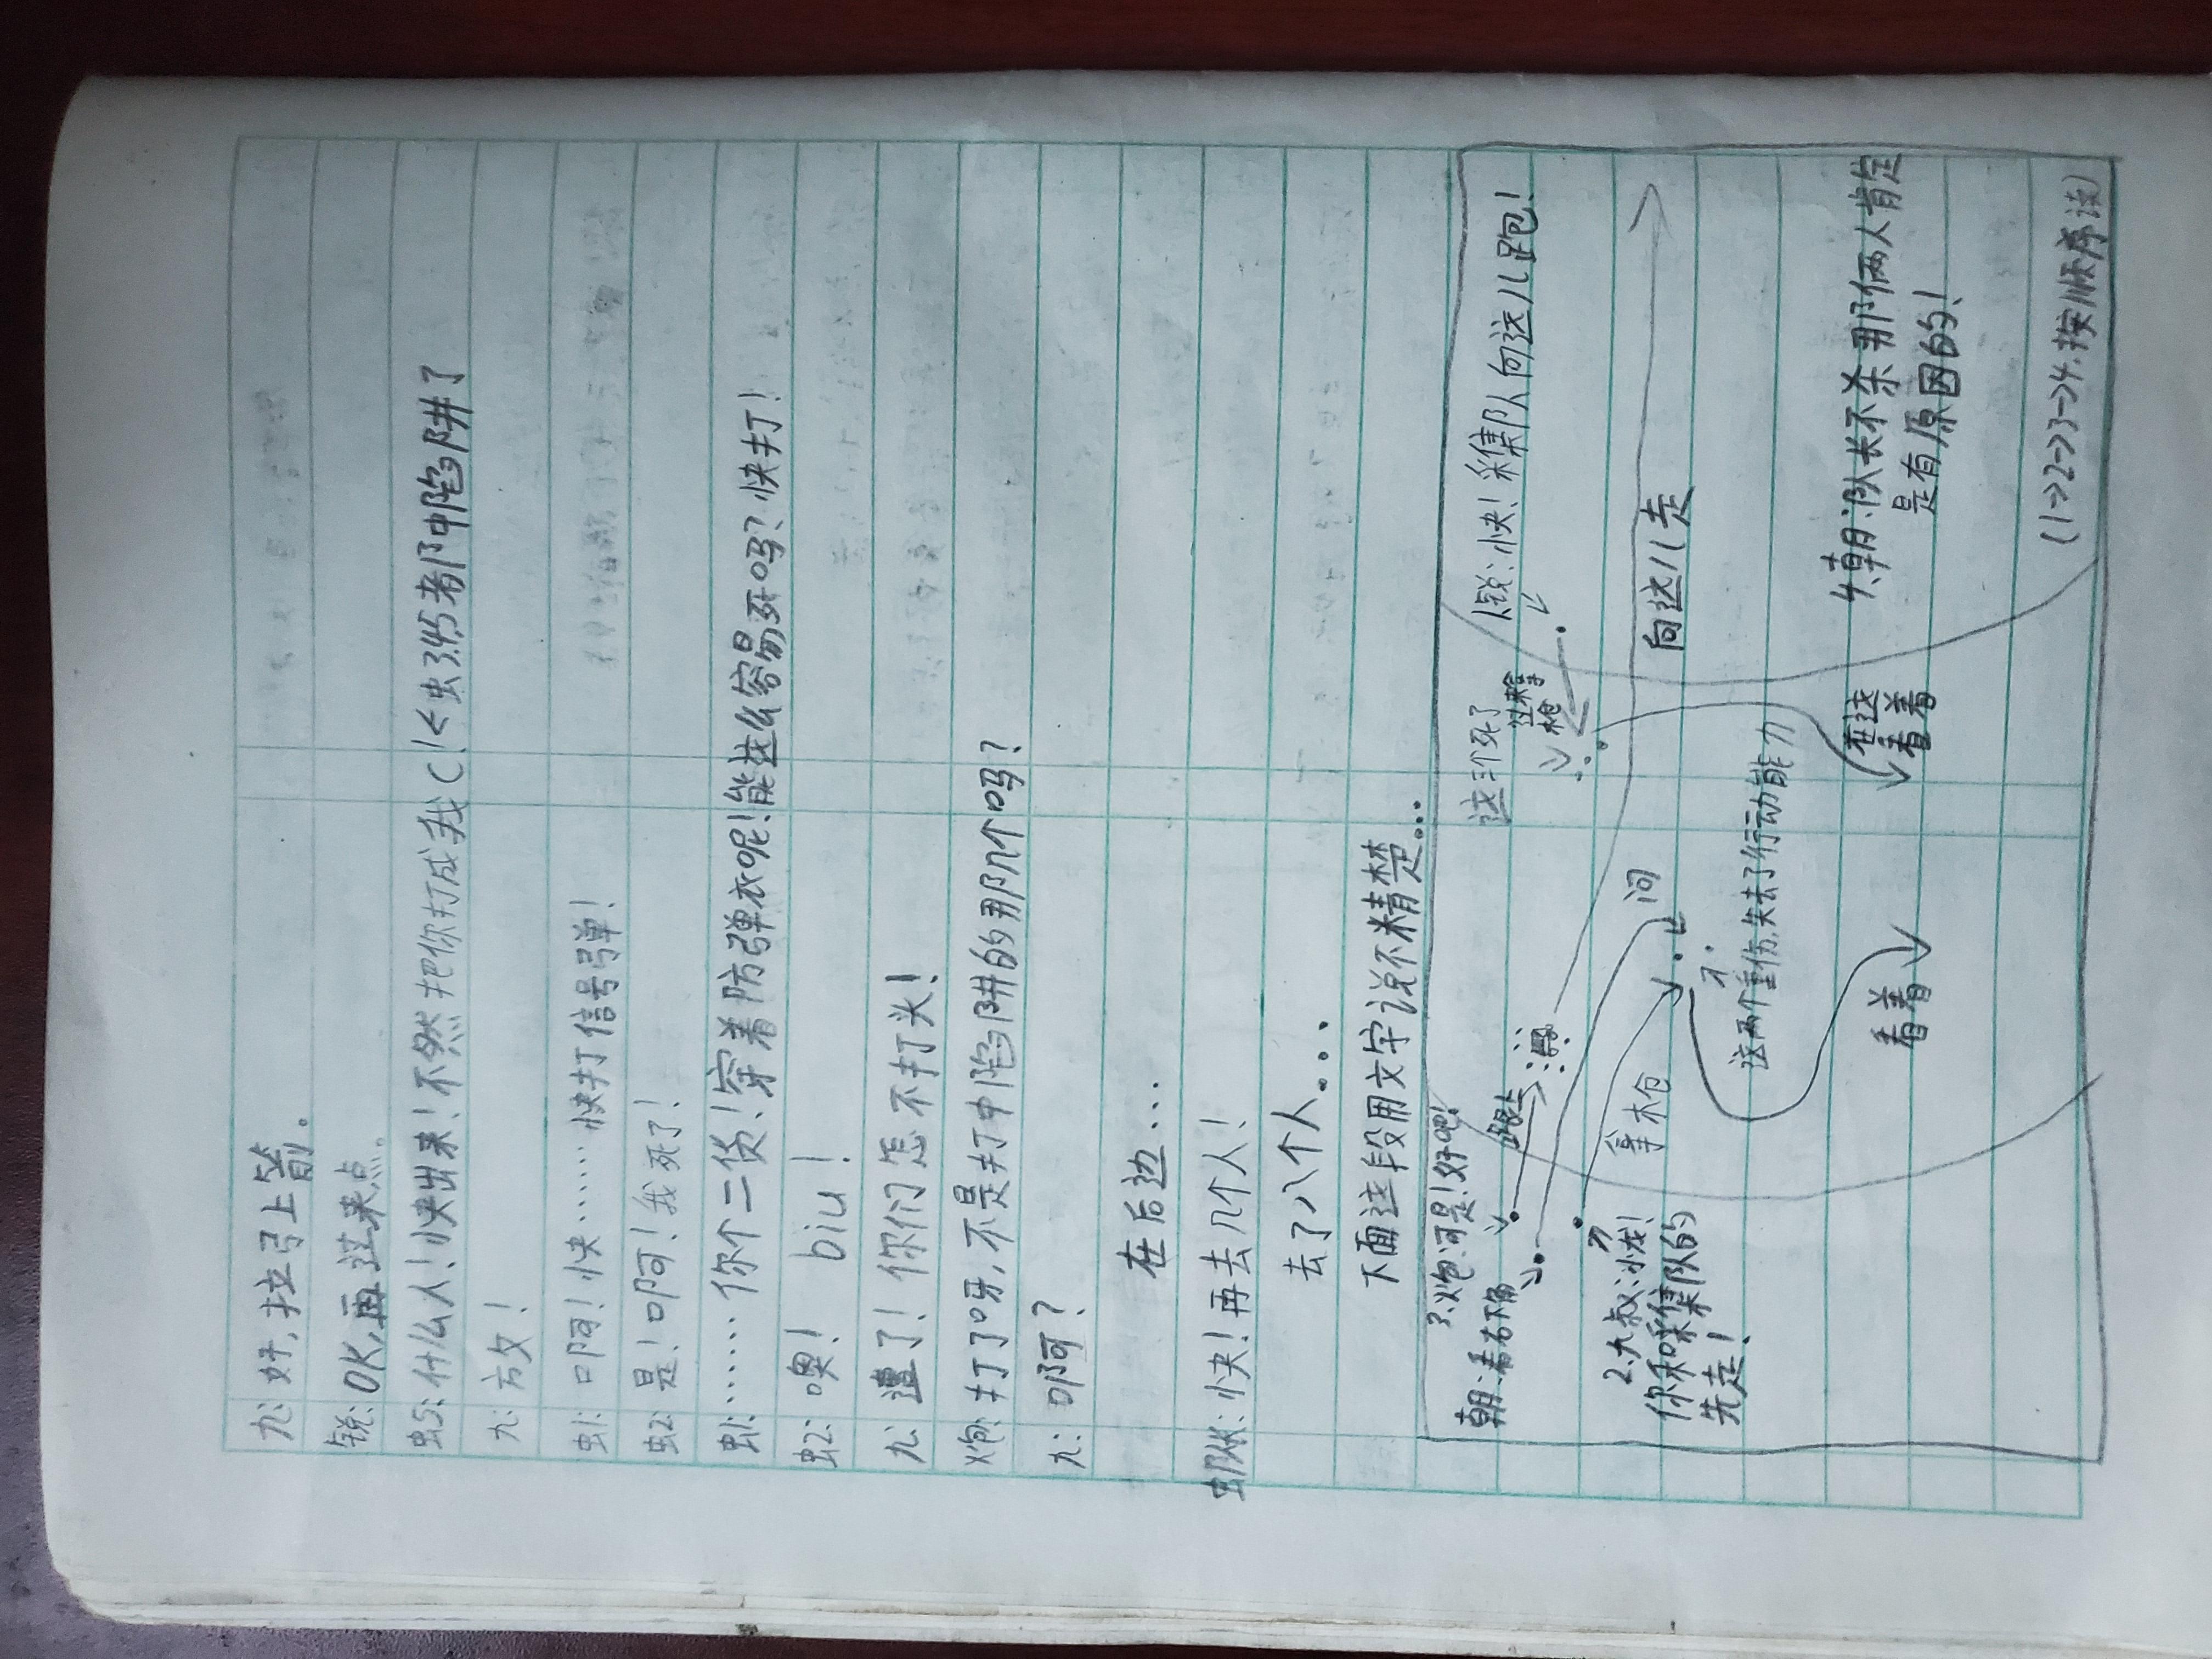 九：好，拉弓上箭。
锐：OK，再过来点。
虫5：什么人！快出来！不然把你打成我C！<虫3.4.5都中陷阱了
九：方攵！
虫1：啊！快……快打信号弹！
虫2：是！啊！我死了！
虫1：……你个二货！穿着防弹衣呢！能这么容易死吗？快打！
虫2：噢！ biu！
九：遭了！你们怎不打头！
炮：打了呀，不是打中陷阱的那几个吗？
九：啊？
在后边...
虫队长：快！再去几个人！
去了八个人...
下面这段用文字说不精楚...
1.锐：快！采集队向这儿跑！
这三个死了
过来拿枪
向这儿走
3.炮：可是！好吧！
跟上
朝：看右下角
问
拿枪
2.九叔：小龙！
你和采集队的
先走！
这两个重伤，失去了行动能力
在这
看着
看着
4.朝：队长不杀那俩人肯定
是有原因的！
(1→2→3→4.按顺序读)